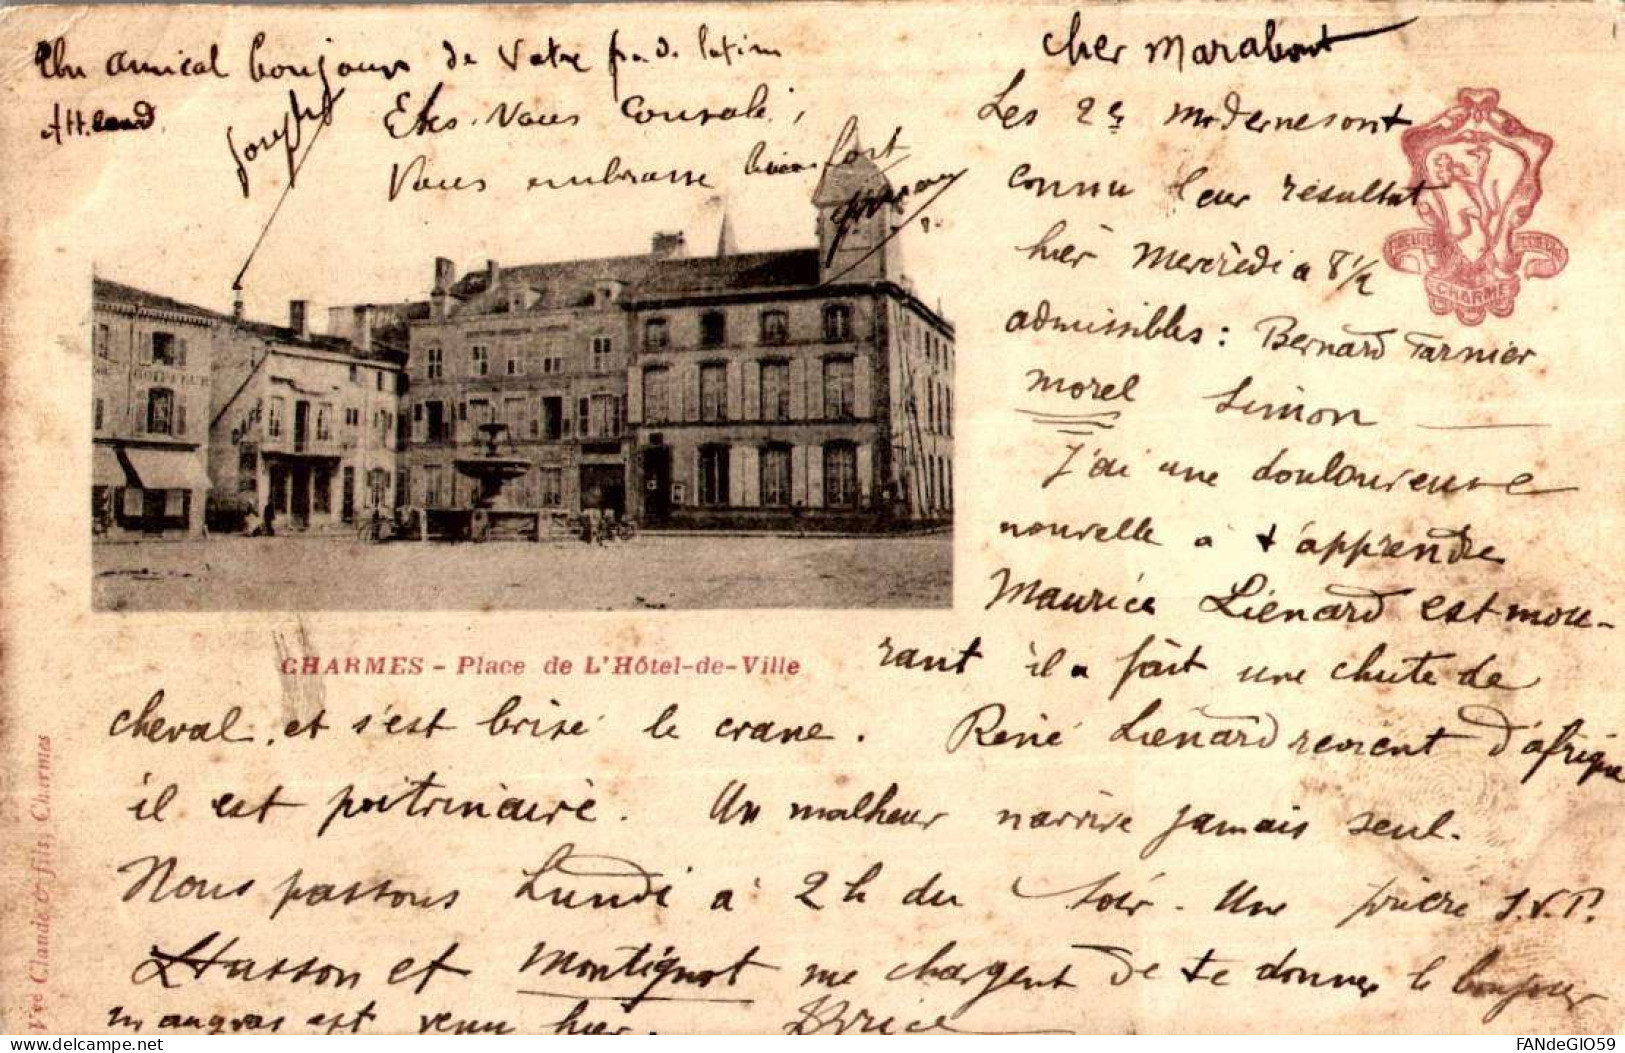 Un amical bonjour de Votre
Joseph
Etes-Vous Consolé ;
Vous embrasse bien fort
Cher Marabout
Les 2es modernes ont
connu leur résultat
hièr Mercrèdi a 8 1/2
admissibles : Bernard Tarnier
morel Simon
J'ai une douloureuse
nouvelle à t'apprendre
Maurice Liénard est mou-
rant il a fait une chute de
cheval, et s'est brisé le crane.
René Liénard revient d'afrique
il est poitrinaire. Un malheur narrive jamais seul.
Nous passons Lundi à 2h du soir. Une prière S.V.P.
Husson et Montignot me chargent de te donner le bonjour
mangras est venu hier.
CHARMES
CHARMES - Place de L'Hôtel-de-Ville
Vve Claude & fils, Charmes
FANdeGIO59